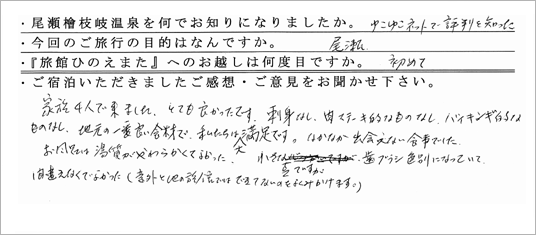 ・尾瀬檜枝岐温泉を何でお知りになりましたか。 ゆこゆこネットで評判を知った
・今回のご旅行の目的はなんですか。 尾瀬
・『旅館ひのえまた』へのお越しは何度目ですか。 初めて
・ご宿泊いただきましたご感想・ご意見をお聞かせ下さい。
家族4人で来ました。とても良かったです。刺身なし、肉ステーキ的なものなし、バイキング的な
ものなし、地元の一番良い食材で、私たちは大満足です。なかなか出会えない食事でした。
お風呂は湯質がやわらかくてよかった。小さな 事ですが、歯ブラシ色別になっていて、
間違えなくてよかった(意外と他の旅館では